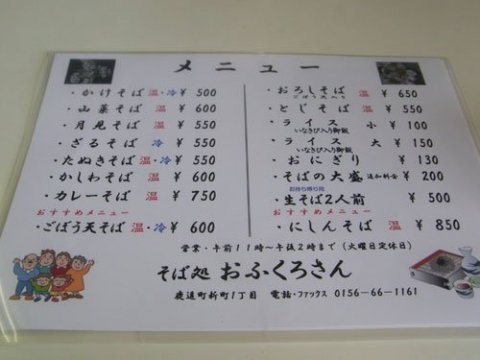 メニュー
・かけそば 温・冷 ¥ 500
・山菜そば 温 ¥ 600
・月見そば 温 ¥ 550
・ざるそば ・冷 ¥ 550
・たぬきそば 温・冷 ¥ 550
・かしわそば 温 ¥ 600
・カレーそば 温 ¥ 750
おすすめメニュー
・ごぼう天そば 温・冷 ¥ 600
・おろしそば 温 ¥ 650
ごぼう天入り
・とじそば 温 ¥ 550
・ライス 小 ¥ 100
いなきび入り御飯
・ライス 大 ¥ 150
いなきび入り御飯
・おにぎり ¥ 130
・そばの大盛 追加料金 ¥ 200
お持ち帰り用
・生そば2人前 ¥ 500
おすすめメニュー
・にしんそば 温 ¥ 850
営業・午前11時～午後2時まで（火曜日定休日）
そば処 おふくろさん
鹿追町新町1丁目 電話・ファックス 0156-66-1161